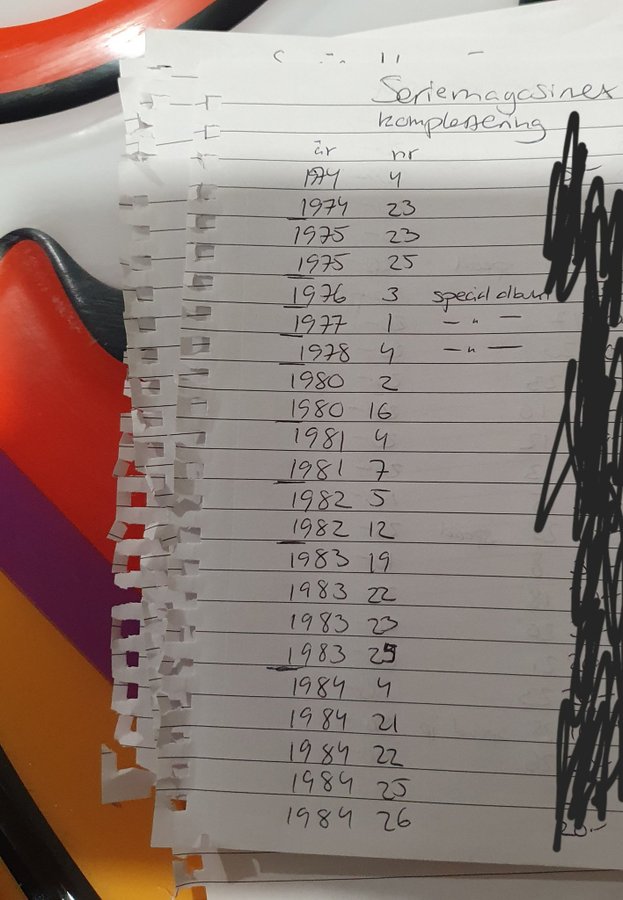 Seriemagasinet
komplettering
år nr
1974 4
1974 23
1975 23
1975 25
1976 3 special album
1977 1 — " —
1978 4 — " —
1980 2
1980 16
1981 4
1981 7
1982 5
1982 12
1983 19
1983 22
1983 23
1983 25
1984 4
1984 21
1984 22
1984 25
1984 26